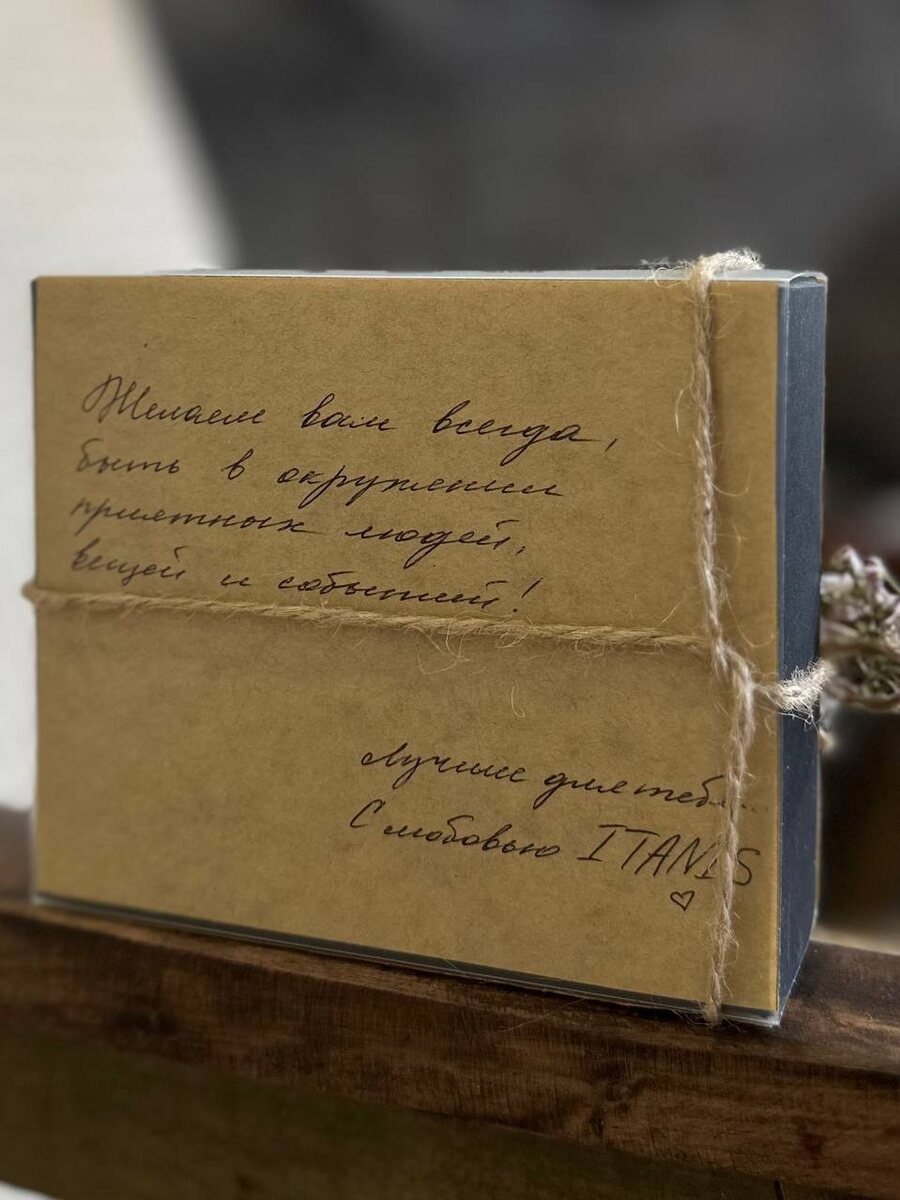 Желаем вам всегда,
быть в окружении
приятных людей,
вещей и событий!
Лучшие для теб...
С любовью ITANIS